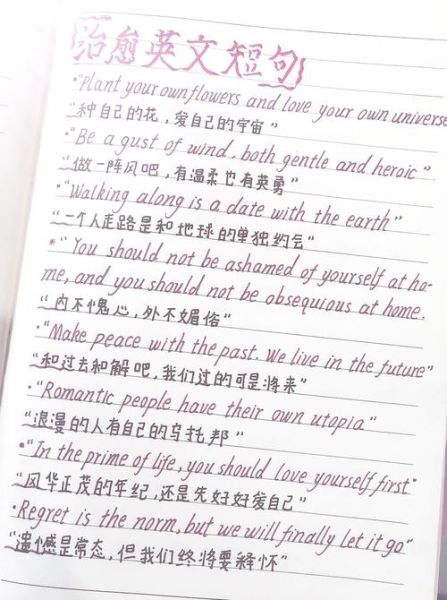 治愈英文短句
·"Plant your own flowers and love your own universe
"种自己的花，爱自己的宇宙"
·"Be a gust of wind, both gentle and heroic"
"做一阵风吧，有温柔也有英勇"
·"Walking along is a date with the earth"
"一个人走路是和地球的单独约会"
·"You should not be ashamed of yourself at ho-
me, and you should not be obsequious at home.
"内不愧心，外不媚俗"
·"Make peace with the past. We live in the future"
"和过去和解吧，我们过的可是将来"
·"Romantic people have their own utopia"
"浪漫的人有自己的乌托邦"
·"In the prime of life, you should love yourself first"
"风华正茂的年纪，还是先好好爱自己"
·Regret is the norm, but we will finally let it go"
"遗憾是常态，但我们终将要释怀"